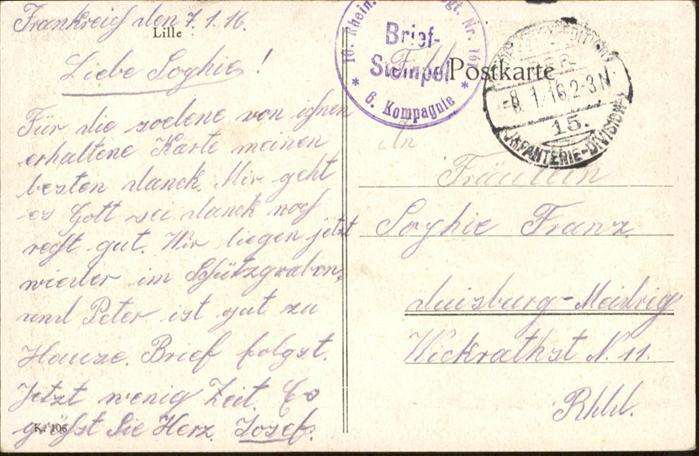 Frankreich den 7.1.16.
Lille
Liebe Soghie!
Für die soebene von ihnen
erhaltene Karte meinen
besten danck. Mir geht
es Gott sei danck noch
recht gut. Wir liegen jetzt
wieder im Schützgraben,
und Peter ist gut zu
Hause. Brief folgst.
Jetzt wenig Zeit. Es
grüßt Sie Herz. Josef.
10. Rhein. Nr. 161
Brief-
Stempel
6. Kompagnie
Feld Postkarte
-8.1.16.2-3N
15.
INFANTERIE-DIVISION
An
Fräulein
Soghie Franz
duisburg-Meidrig
Wickrathst N. 11.
Rhld.